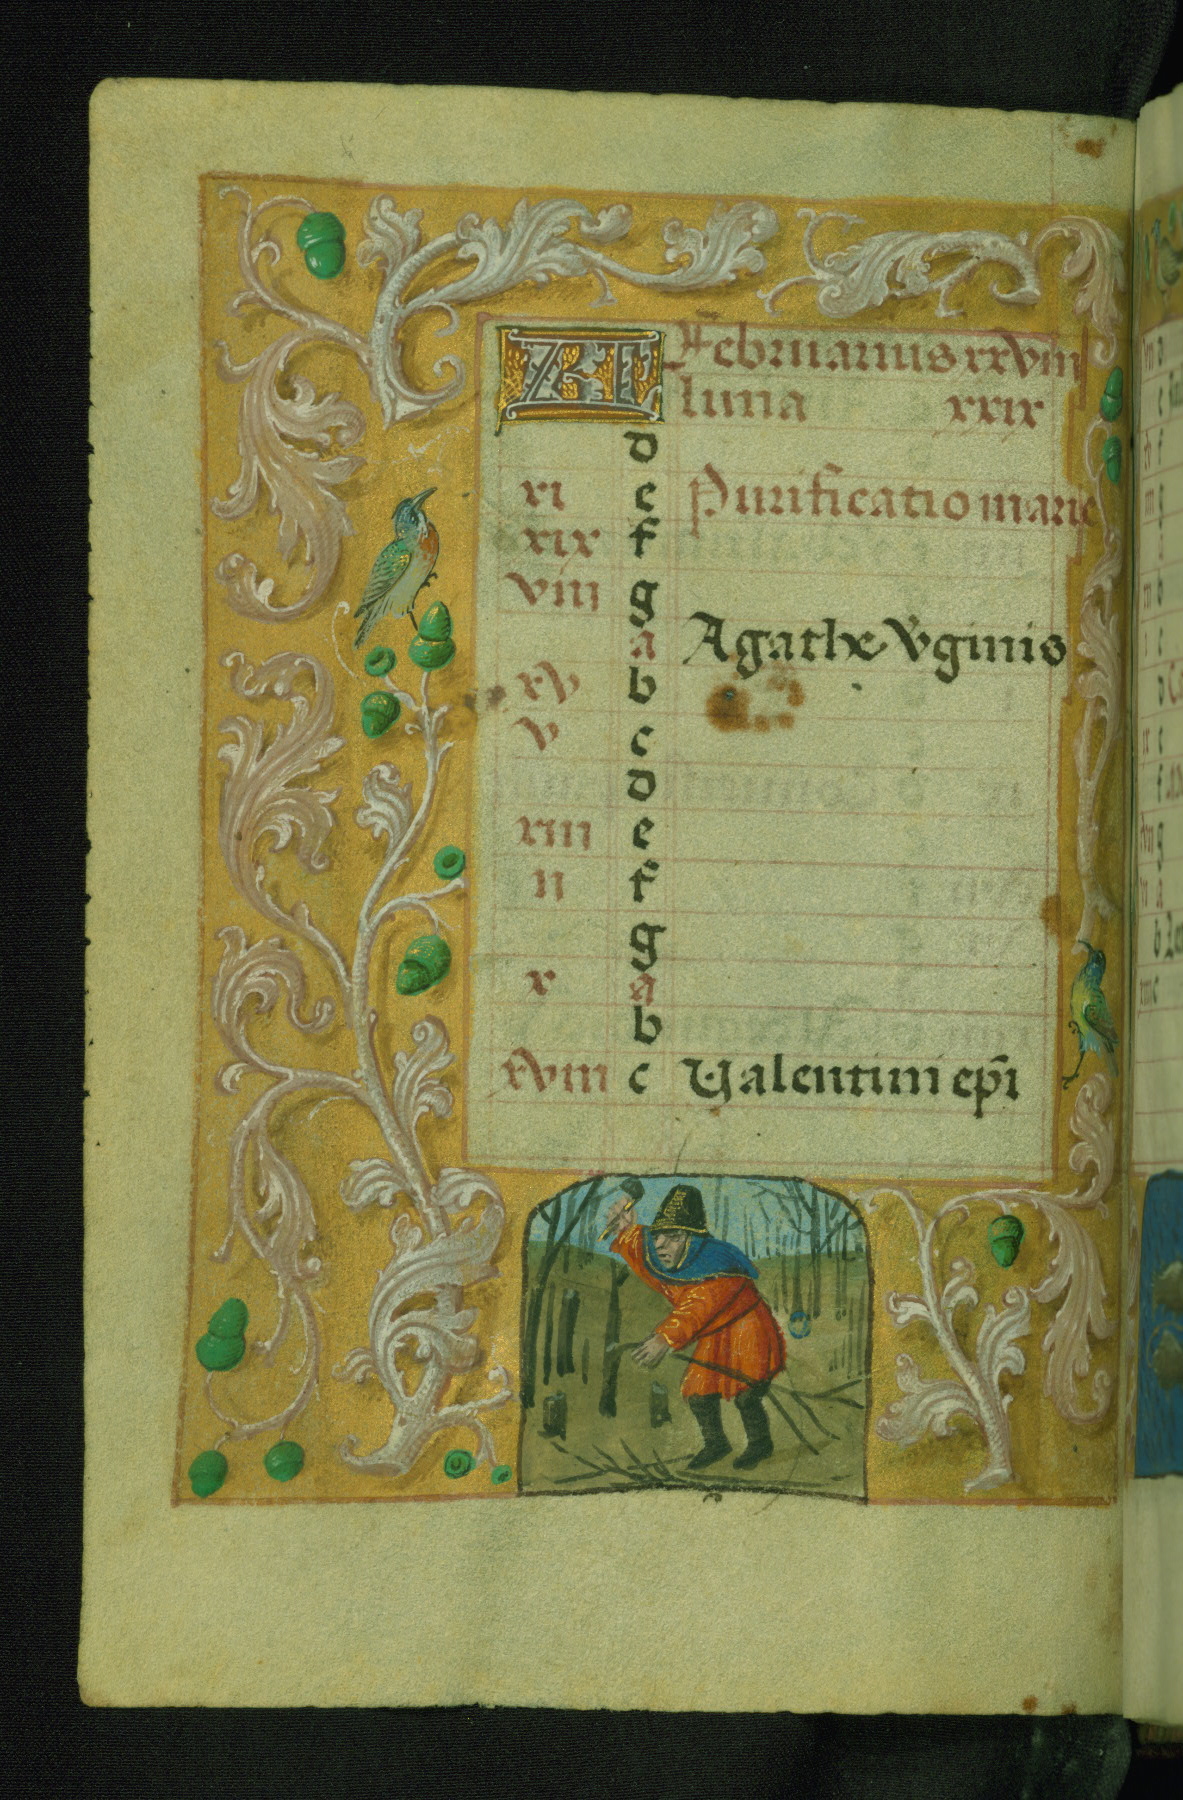 KL Februarius xxviii
luna xxix
d
xi e Purificatio marie
xix f
viii g
a Agathe v̾ginis
xv b
v c
d
xiii e
ii f
g
x a
b
xviii c Valentini ep̄i